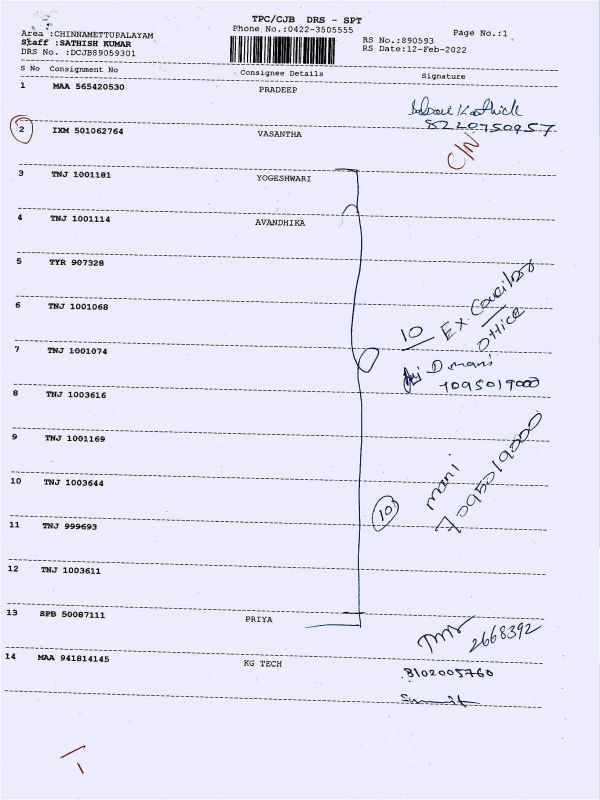 TPC/CJB DRS - SPT
Area :CHINNAMETTUPALAYAM
Phone No.:0422-3505555
Page No.:1
Staff :SATHISH KUMAR
RS No.:890593
DRS No. :DCJB89059301
RS Date:12-Feb-2022
S No Consignment No Consignee Details Signature
1 MAA 565420530 PRADEEP
8220750957
2 IXM 501062764 VASANTHA
C/N
3 TNJ 1001181 YOGESHWARI
4 TNJ 1001114 AVANDHIKA
5 TYR 907328
6 TNJ 1001068
10 Ex. Councilor
Office
7 TNJ 1001074
D mani
7095019000
8 TNJ 1003616
9 TNJ 1001169
mani
7095019000
10 TNJ 1003644
10
11 TNJ 999693
12 TNJ 1003611
13 SPB 50087111 PRIYA
2668392
14 MAA 941814145 KG TECH
8102005760